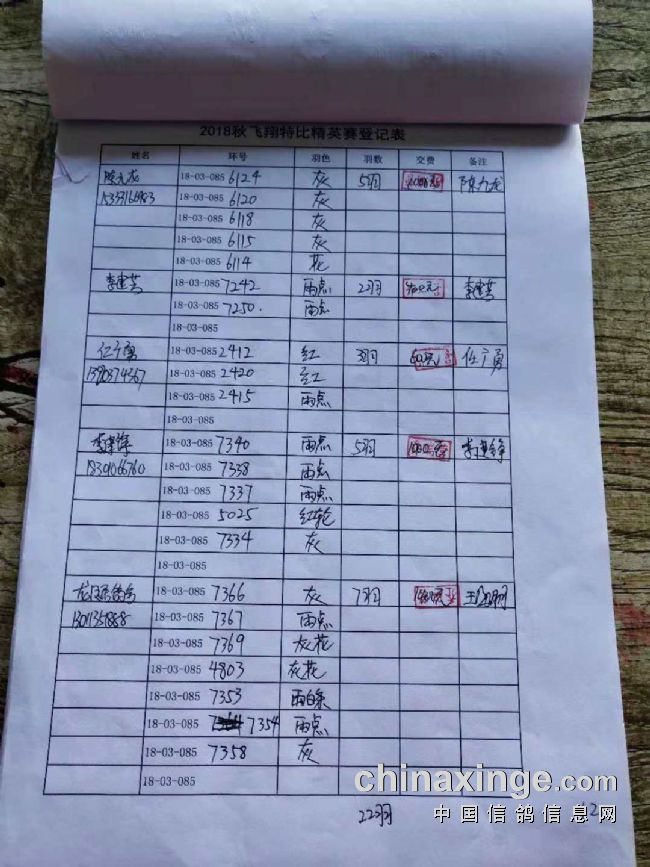 2018秋飞翔特比精英赛登记表
姓名 环号 羽色 羽数 交费 备注
陈九龙 18-03-085 6124 灰 5羽 1000元 陈九龙
18-03-085 6120 灰
18-03-085 6118 灰
18-03-085 6115 灰
18-03-085 6114 花
李建英 18-03-085 7242 雨点 2羽 李建英
18-03-085 7250. 雨点
18-03-085
任广勇 18-03-085 2412 红 3羽 600元 任广勇
18-03-085 2420 红
18-03-085 2415 雨点
18-03-085
李建锋 18-03-085 7340 雨点 5羽 1000元
18301066760 18-03-085 7338 雨点
18-03-085 7337 雨点
18-03-085 5025 红轮
18-03-085 7334 灰
18-03-085
18-03-085 7366 灰 7羽
18-03-085 7367 雨点
18-03-085 7369 灰花
18-03-085 4803 灰花
18-03-085 7353 雨白条
18-03-085 7354 雨点
18-03-085 7358 灰
18-03-085
22羽
chinaxinge.com
中国信鸽信息网